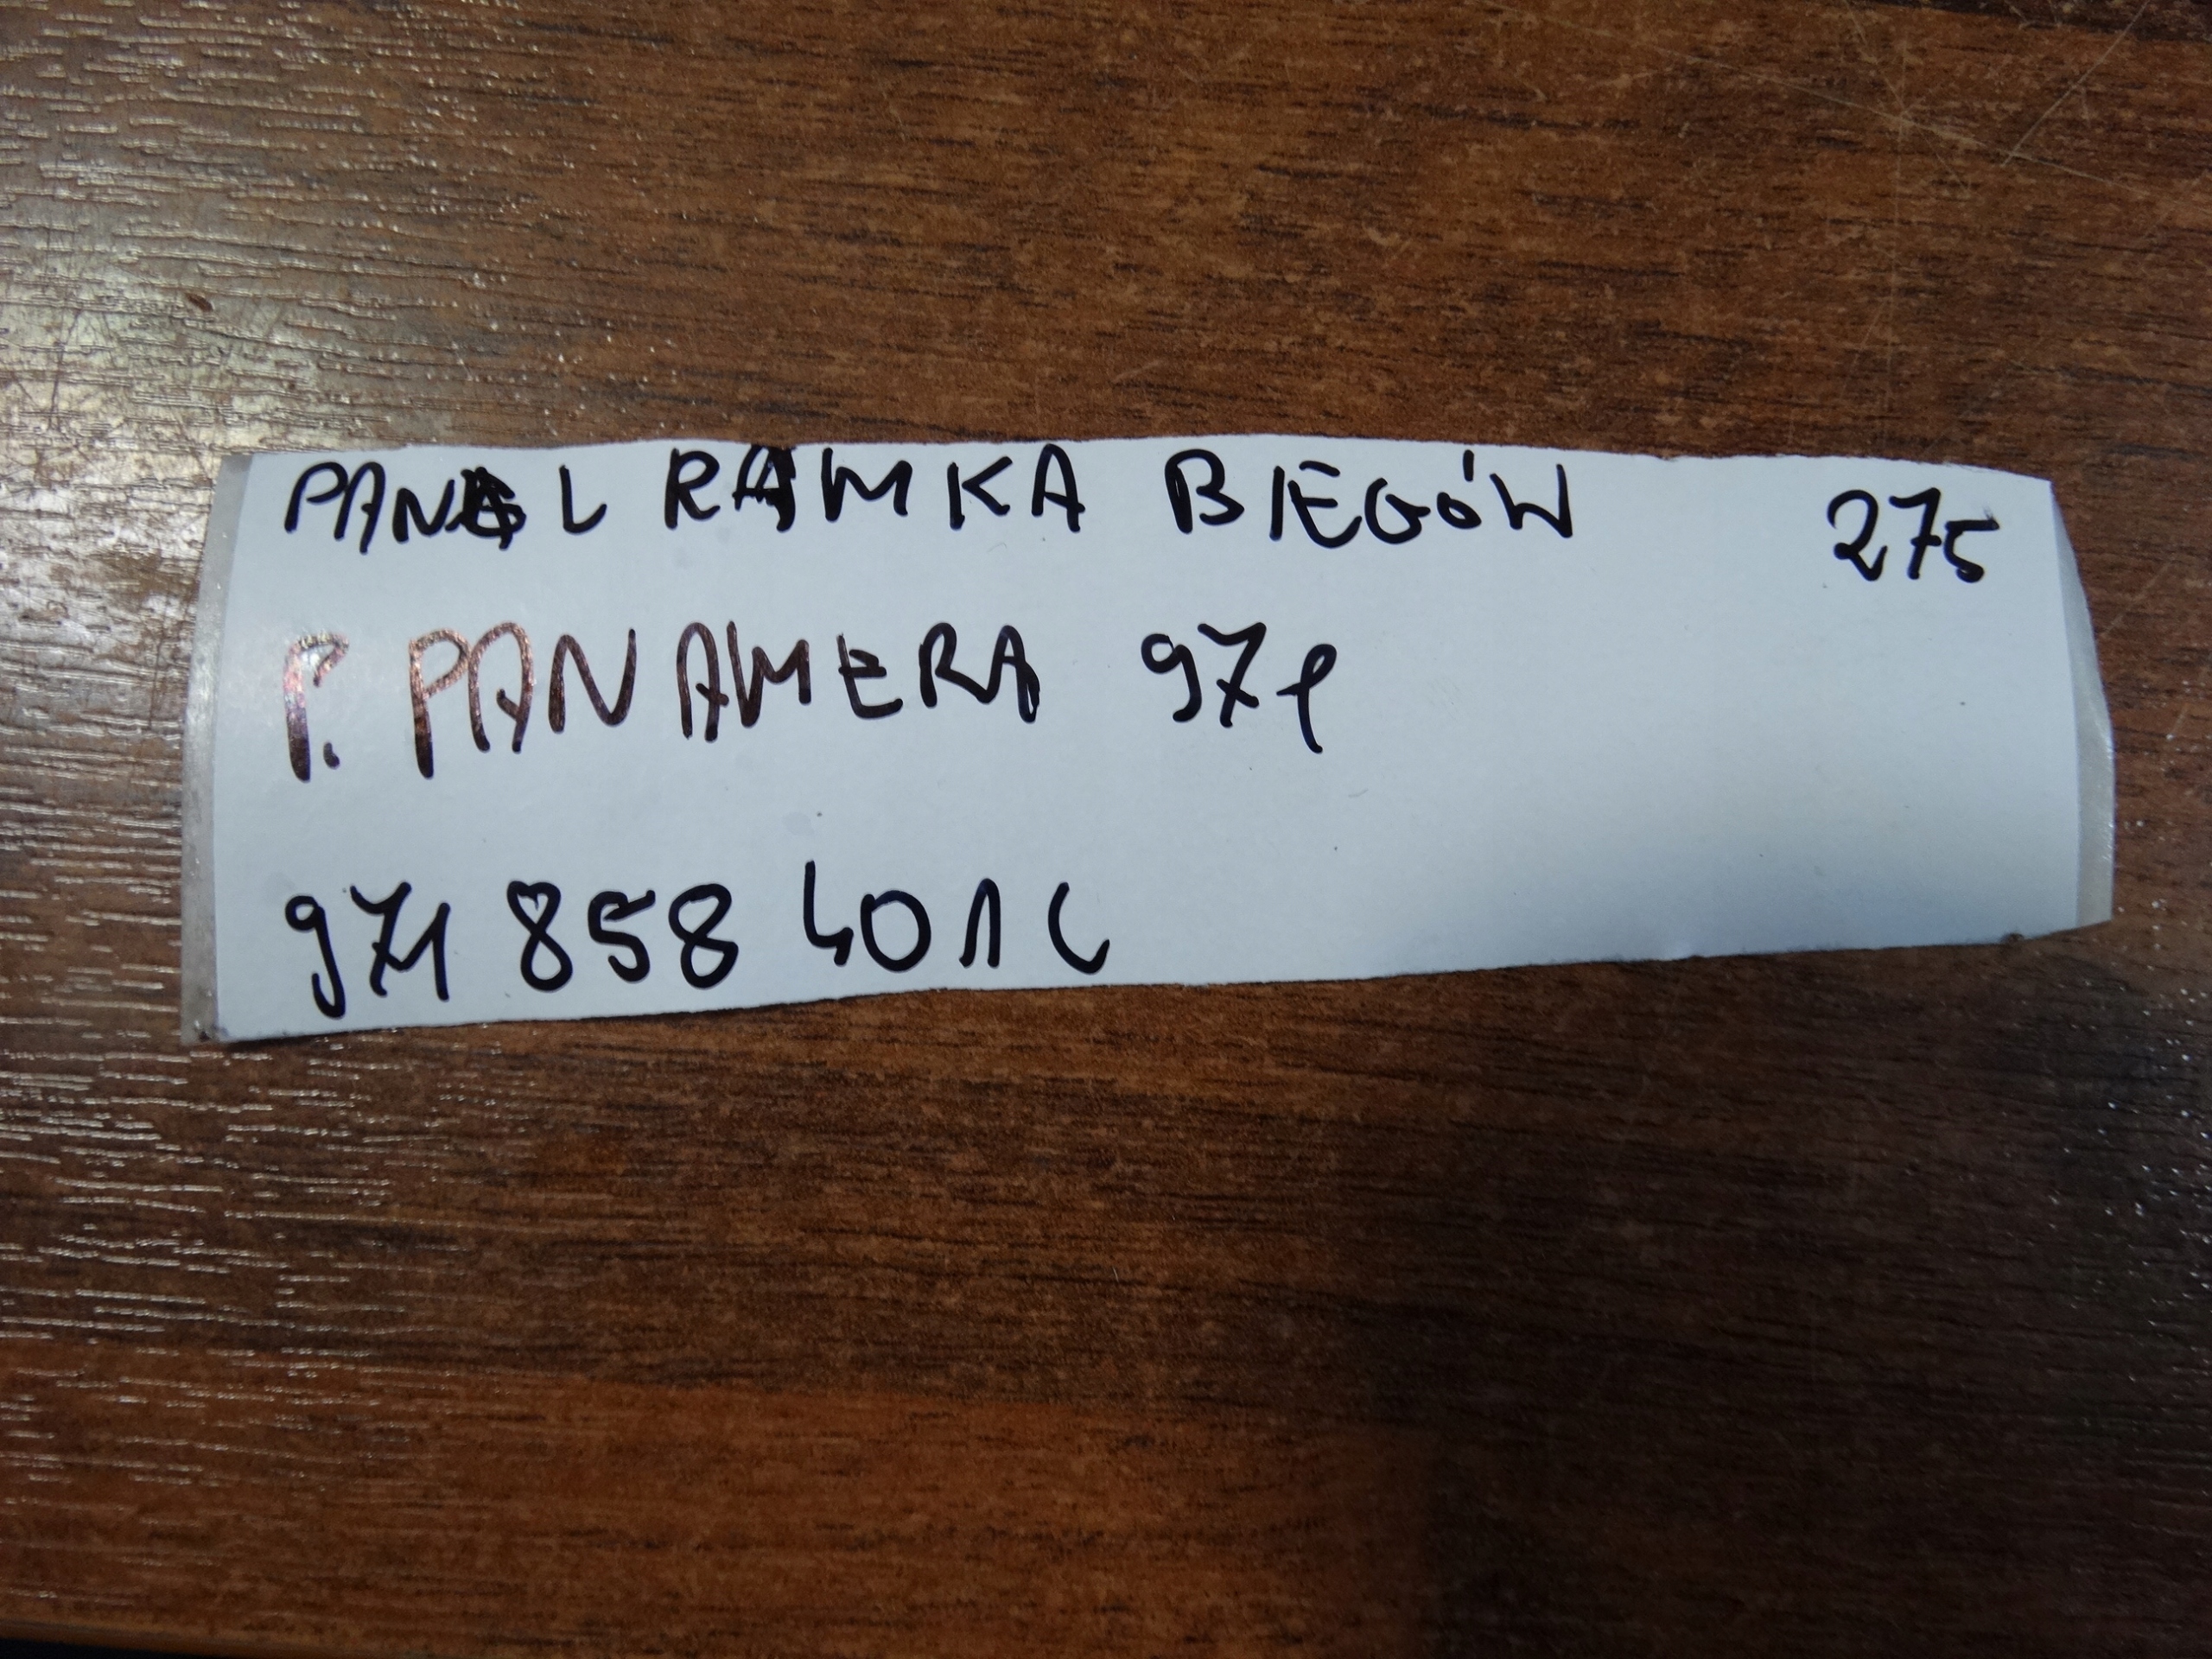 PANEL RAMKA BIEGÓW 275
P. PANAMERA 971
971 858 401 C